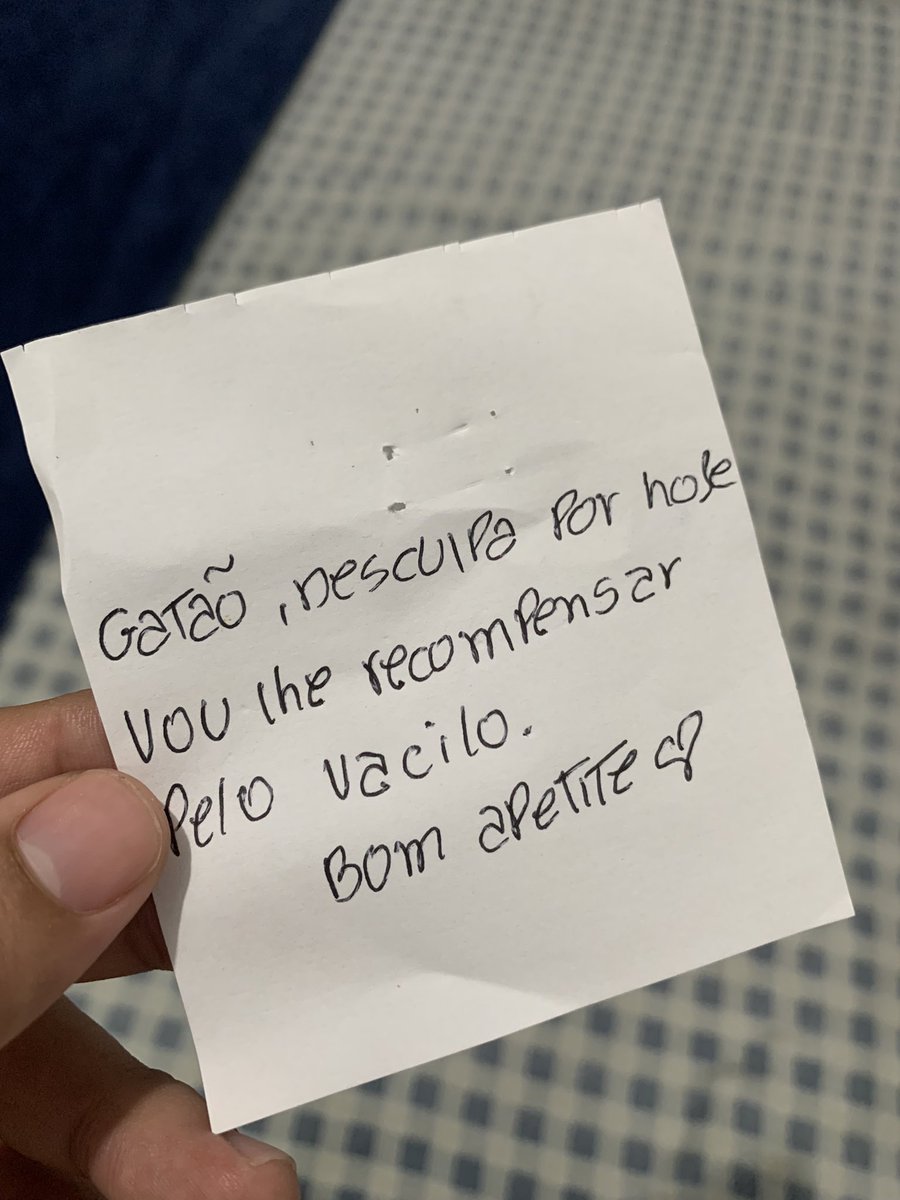 Gatão, Desculpa por hoje
Vou lhe recompensar
Pelo vacilo.
Bom apetite ♡